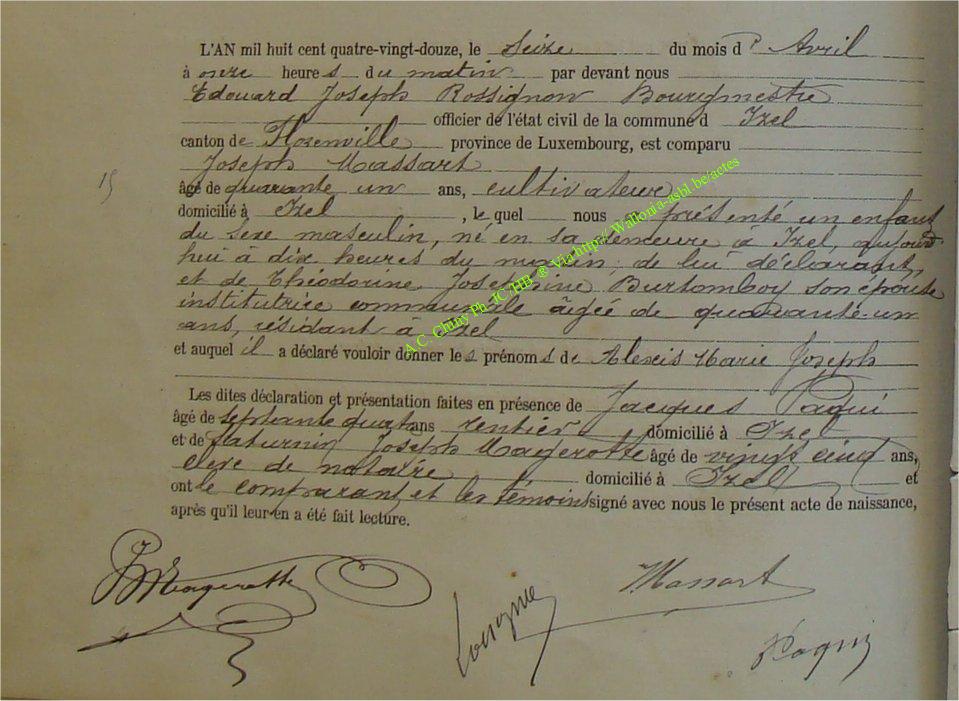 L'AN mil huit cent quatre-vingt-douze, le Seize du mois d' Avril
à onze heures du matin par devant nous
Edouard Joseph Rossignon Bourgmestre
officier de l'état civil de la commune d Izel
canton de Florenville province de Luxembourg, est comparu
Joseph Massart
15
âgé de quarante un ans, cultivateur
domicilié à Izel, lequel nous a présenté un enfant
du sexe masculin, né en sa demeure à Izel, aujourd
hui à dix heures du matin, de lui déclarant,
et de Théodorine Josephine Burtomboy son épouse
institutrice communale âgée de quarante-un
ans, résidant à Izel
et auquel il a déclaré vouloir donner les prénoms de Alexis Marie Joseph
Les dites déclaration et présentation faites en présence de Jacques Paqui
âgé de septante quatre ans rentier domicilié à Izel
et de Saturnin Joseph Magerotte âgé de vingt cinq ans,
clerc de notaire domicilié à Izel et
ont le comparant et les témoins signé avec nous le présent acte de naissance,
après qu'il leur en a été fait lecture.
A.C. Chiny Ph. JC/HB ® Via http// Wallonia-asbl.be/actes
J Magerotte
Massart
J Paqui